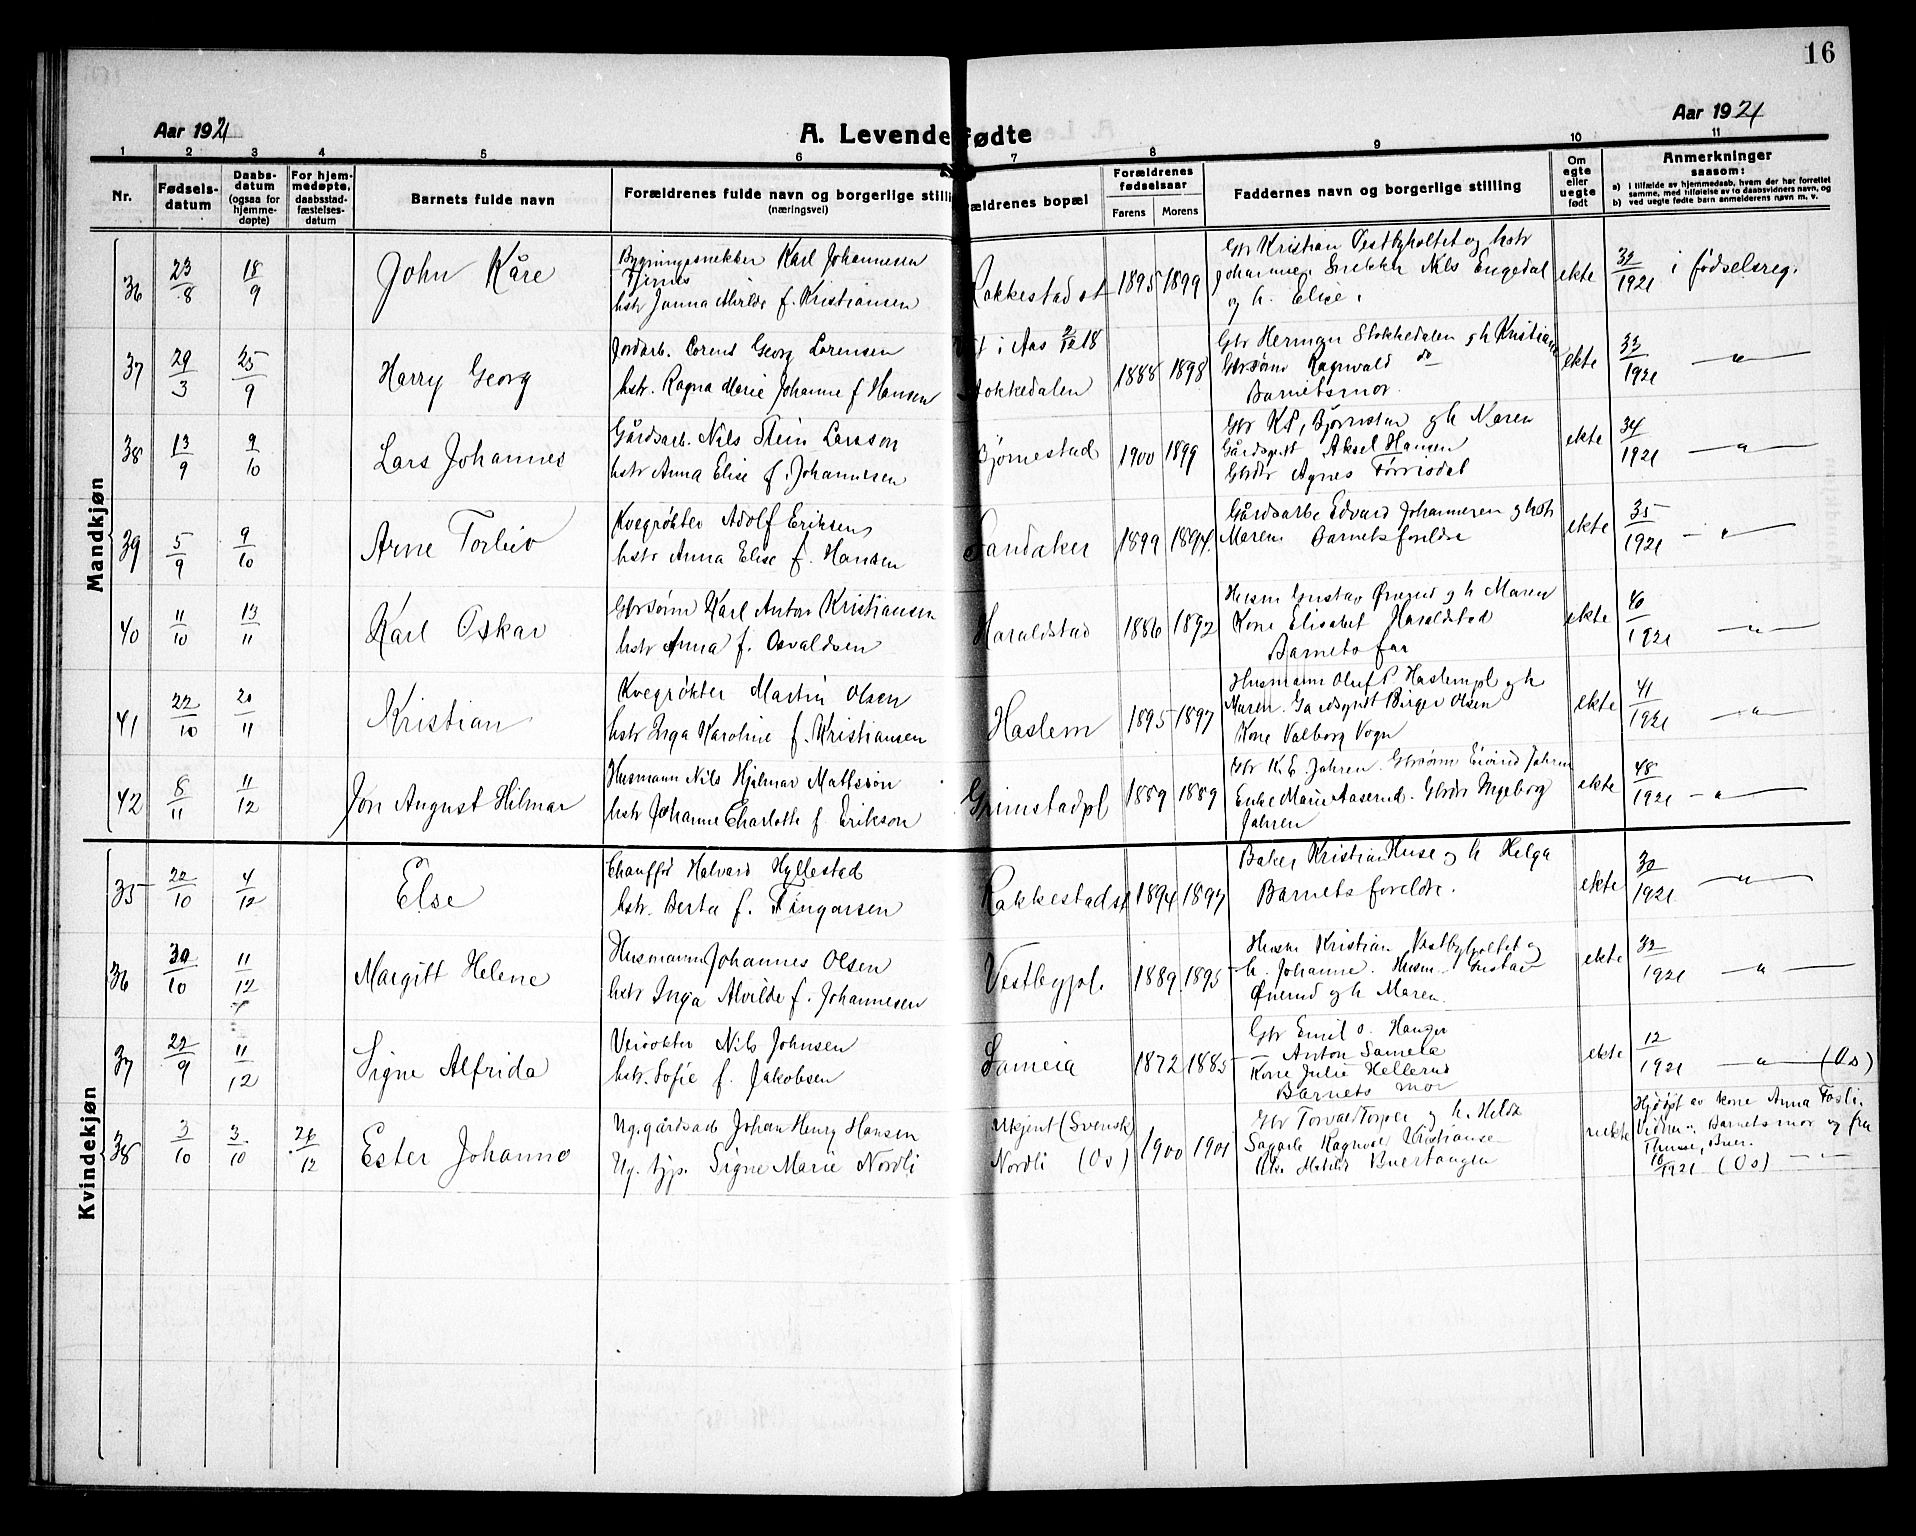 16
Aar 1921
A. Levendefødte
Aar 1921
1 2 3 4 5 6 7 8 9 10 11
Nr.
Fødsels-
datum
Daabs-
datum
(ogsaa for
hjemme-
døpte)
For hjem-
medøpte,
daabsstad-
fæstelses-
datum
Barnets fulde navn
Forældrenes fulde navn og borgerlige stilli
(næringsvei)
ældrenes bopæl
Forældrenes
fødselsaar
Farens Morens
Faddernes navn og borgerlige stilling
Om
egte
eller
uegte
født
Anmerkninger
saasom:
a) i tilfælde av hjemmedaab, hvem der har forrettet
samme, med tilføielse av to daabsvidners navn, og
b) ved uegte fødte barn anmelderens navn m. v.
Mandkjøn
36 23/8 18/9 John Kåre
Bygningssnekker Karl Johannesen
Tjernes
hstr Janna Alvilde f. Kristiansen
Rakkestad st 1895 1899
Gbr Kristian Vestbyholtet og hstr
Johanne, Snekker Nils Engedal
og h. Elise.
ekte 32/1921 i fødselsreg.
37 29/3 25/9 Harry Georg
Jordarb. Lorens Georg Lorensen
hstr. Ragna Marie Johanne f Hansen
i Aas 2/12 18
Stokkedalen 1888 1898
Gbr Herman Stokkedalen og h Kristiane
Gbrsønn Ragnvald do
Barnets mor.
ekte 33/1921 — " —
38 13/9 9/10 Lars Johannes
Gårdsarb. Nils Stein Larsson
hstr Anna Elise f. Johannesen
Bjørnestad 1900 1899
Gbr K.P. Bjørnstad og h Maren
Gårdsgutt Aksel Hansen
Gbrdtr Agnes
ekte 34/1921 — " —
39 5/9 9/10 Arne Torleiv
Kvegrøkter Adolf Eriksen
hstr Anna Elise f. Hansen
Sandaker 1899 1894.
Gårdsarb Edvard Johannesen og hstr
Maren Barnets foreldre
ekte 35/1921 — " —
40 11/10 13/11 Karl Oskar
Gbrsønn Karl Anton Kristiansen
hstr Anna f. Osvaldsen
Haraldstad 1886 1892
Husm Gustav Ønerud og h Maren
Kone Elisabet Haraldstad
Barnets far
ekte 40/1921 — " —
41 22/10 20/11 Kristian
Kvegrøkter Martin Olsen
hstr Inga Karoline f. Kristiansen
Haslem 1895 1897
Husmann Oluf P Haslempl og h
Maren. Gardsgutt Birger Olsen
Kone Valborg Vogn
ekte 41/1921 — " —
42 8/11 11/12 Jon August Hilmar
Husmann Nils Hjalmar Mattsson
hstr Johanne Charlotte f Erikson
Grimstadpl 1889 1889
Gbr K.E. Jahren. Gbrsønn Eivind Jahren
Enke Marie Aaserud. Gbrdtr Ingeborg
Jahren
ekte 48/1921 — " —
Kvindekjøn
35 22/10 4/12 Else
Chauffør Halvard Hyllestad
hstr. Berta f. Tingarsen
Rakkestad st 1894 1897
Baker Kristian Huse og h Helga
Barnets foreldre.
ekte 30/1921 — " —
36 30/10 11/12 Margitt Helene
Husmann Johannes Olsen
hstr Inga Alvilde f. Johannesen
Vestbypl. 1889 1895
Husm Kristian Vestbyholtet og
h. Johanne. Husm Gustav
Ønerud og h Maren.
ekte 32/1921 — " —
37 22/9 11/12 Signe Alfrida
Veivokter Nils Johnsen
hstr. Sofie f. Jakobsen
Sameia 1872 1885
Gbr Emil O. Hanger
— Anton Sameia
Kone Julie Hellerud
Barnets mor
ekte 12/1921 — " — (Os)
38 3/10 3/10 26/12 Ester Johanne
Ug. gårdsarb Johan Henry Hansen
Ug. tjp. Signe Marie Nordli
Ukjent (Svensk)
Nordli (Os) 1900 1901
Gbr Torvald Torper og h. Hilda
Sagarb Ragnvald Kristiansen
Matild Buertangen
uekte
Hjdøpt av kone Anna Fosli.
Vidner: Barnets mor og fru
Buer.
10/1921 (Os) — " —